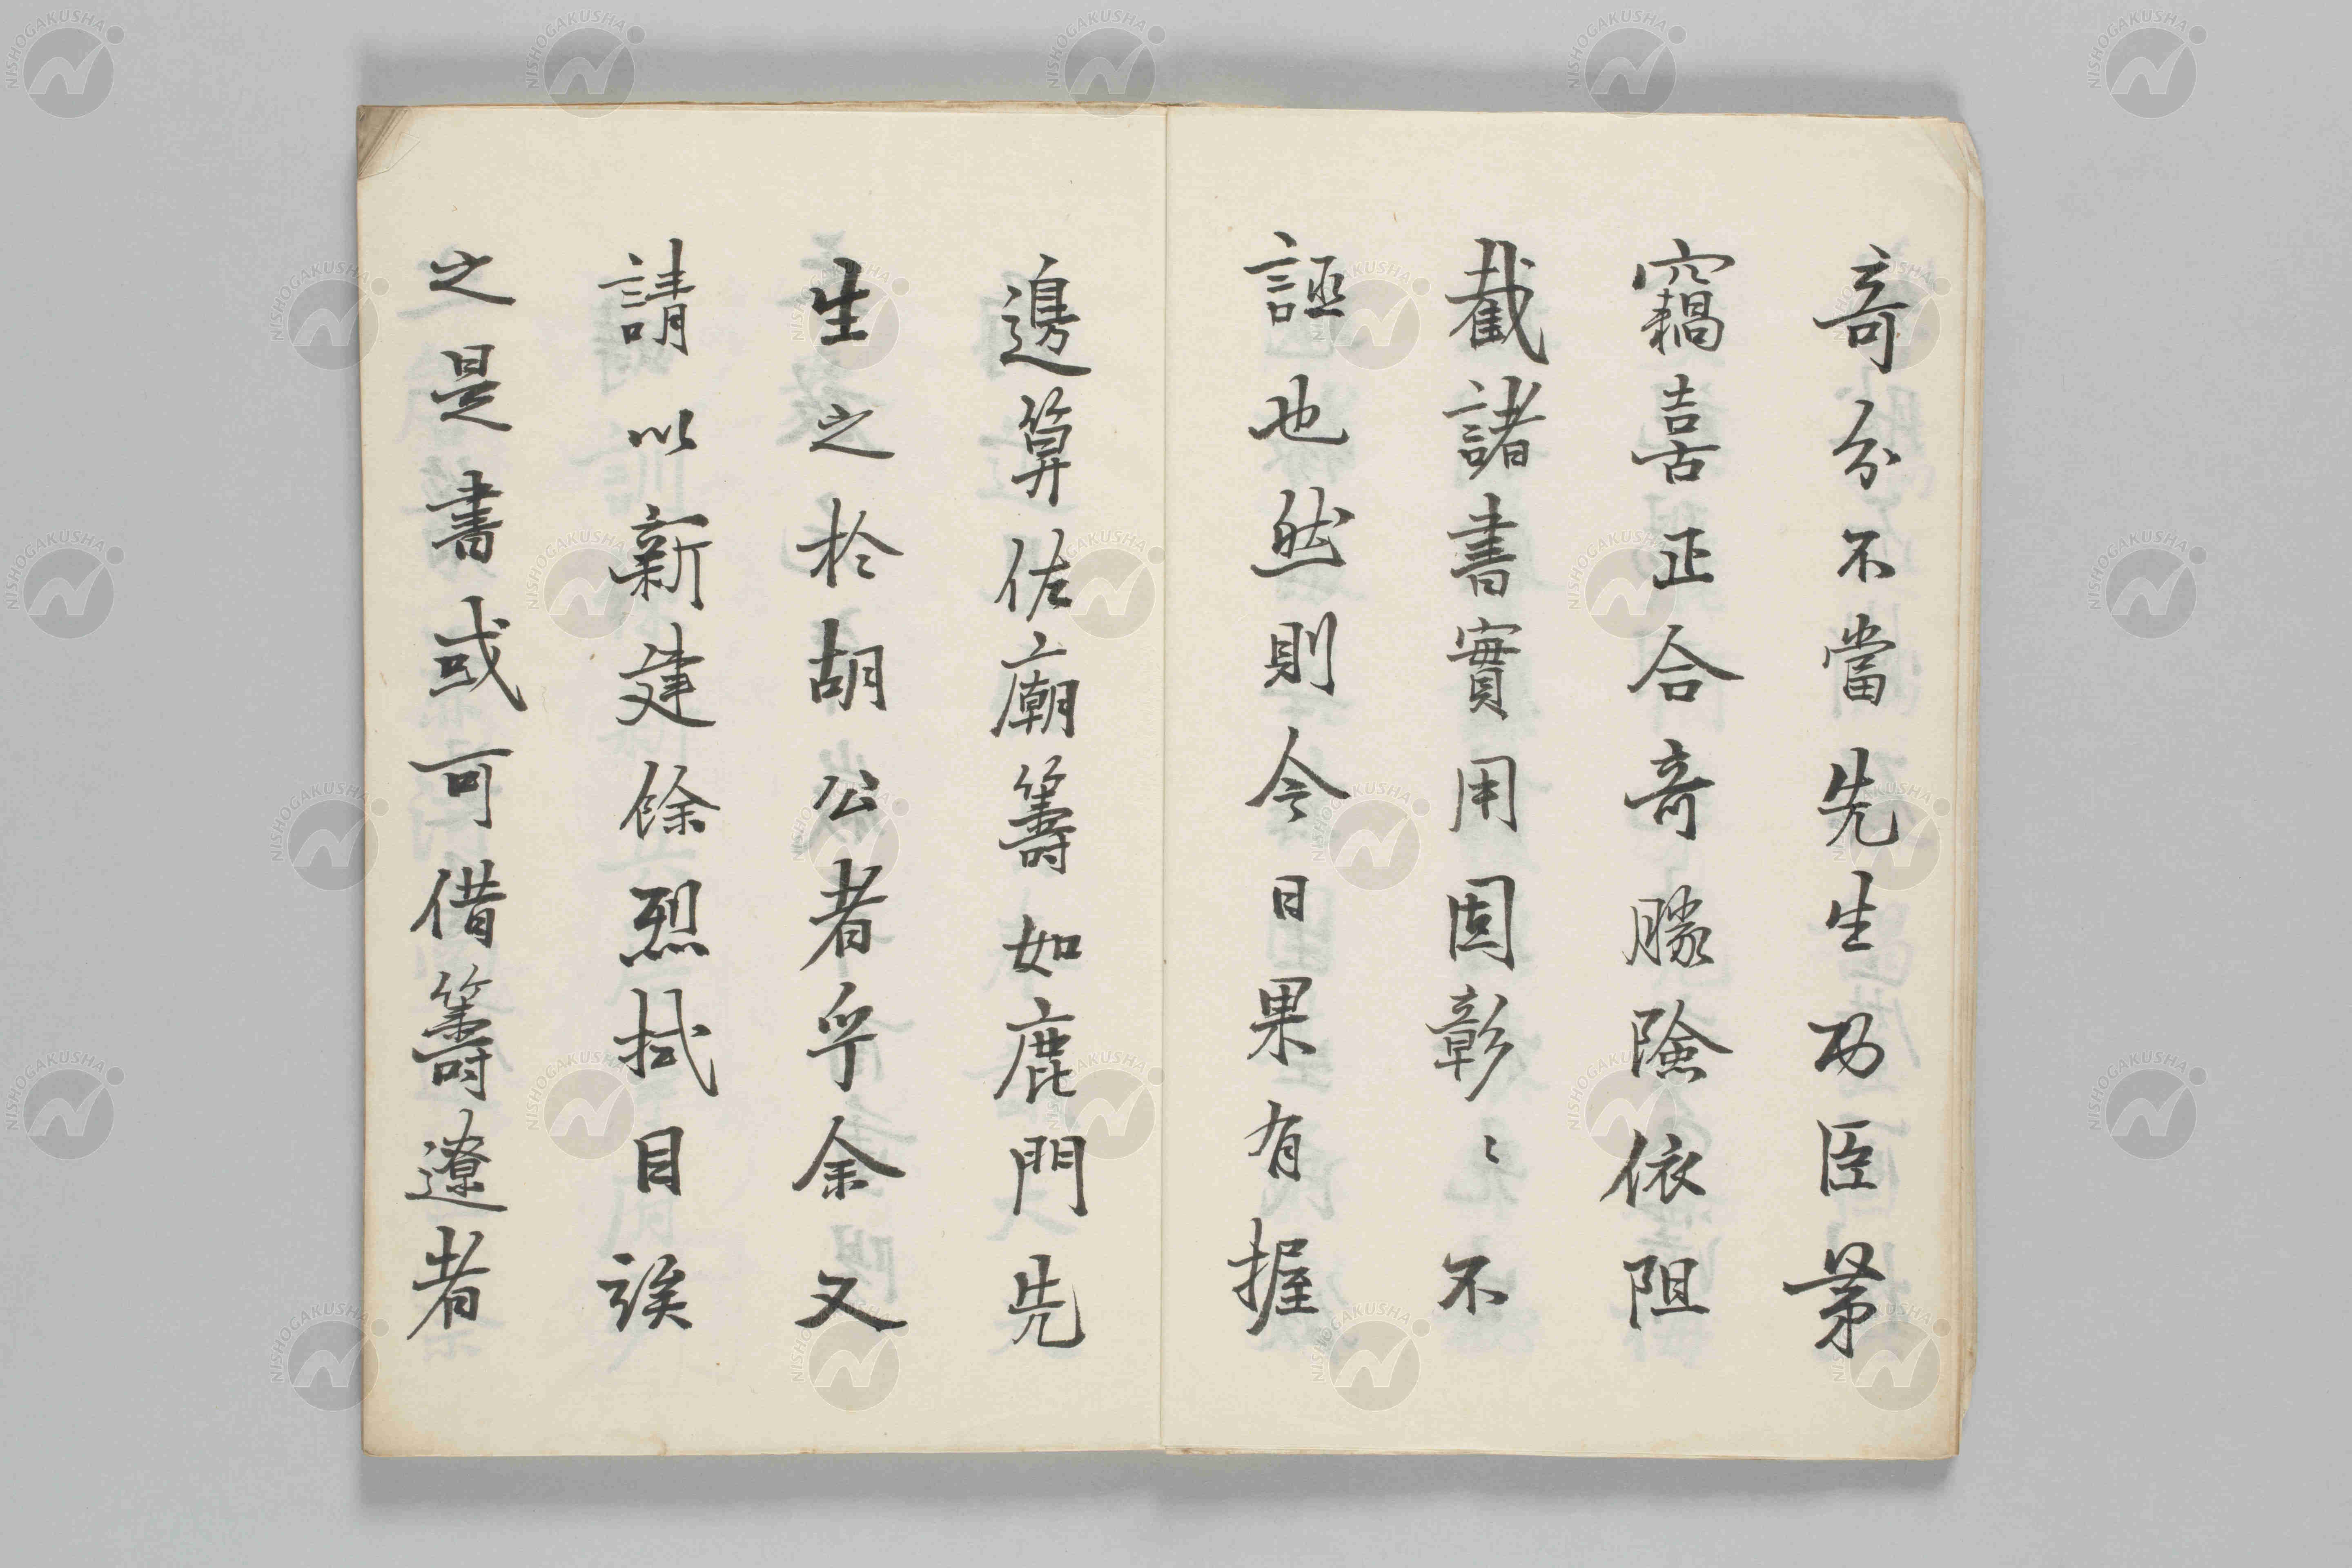 奇分不當先生功臣第
竊喜正合奇勝險依阻
截諸書實用固彰〻不
誣也然則今日果有握
邊算佐廟籌如鹿門先
生之於胡公者乎余又
請以新建餘烈拭目竢
之是書或可借籌遼者
NISHOGAKUSHA